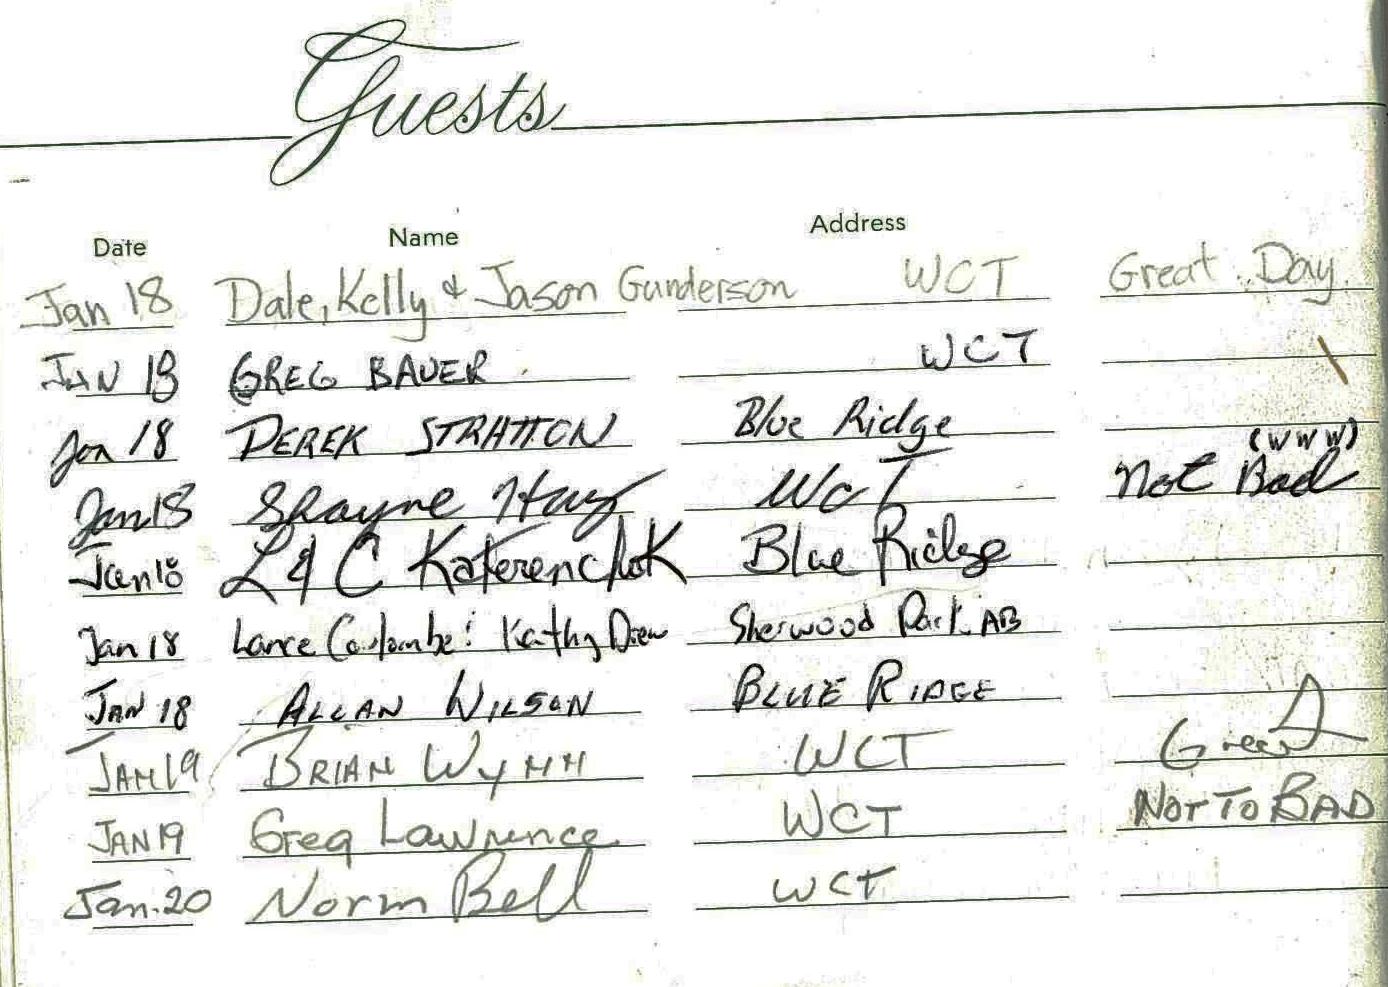 Guests
Date Name Address
Jan 18 Dale, Kelly & Jason Gunderson WCT Great Day.
JAN 18 GREG BAUER WCT
Jan 18 DEREK STRATTON Blue Ridge
(WWW)
Jan 18 Shayne Hay WCT Not Bad
Jan 18 L & C Katerenchuk Blue Ridge
Jan 18 Lance Coulombe : Kathy Drew Sherwood Park. AB
JAN 18 ALLAN WILSON BLUE RIDGE
JAN 19 BRIAN WYNN WCT Great
JAN 19 Greg Lawrence WCT NOT TO BAD
Jan. 20 Norm Bell WCT